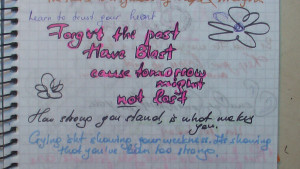 learn to trust your heart
Forget the past
Have Blast
cause tomorrow
might
not last
How strong you stand, is what makes
you.
Crying isn't showing your weakness. It's showing
that you've been too strong.